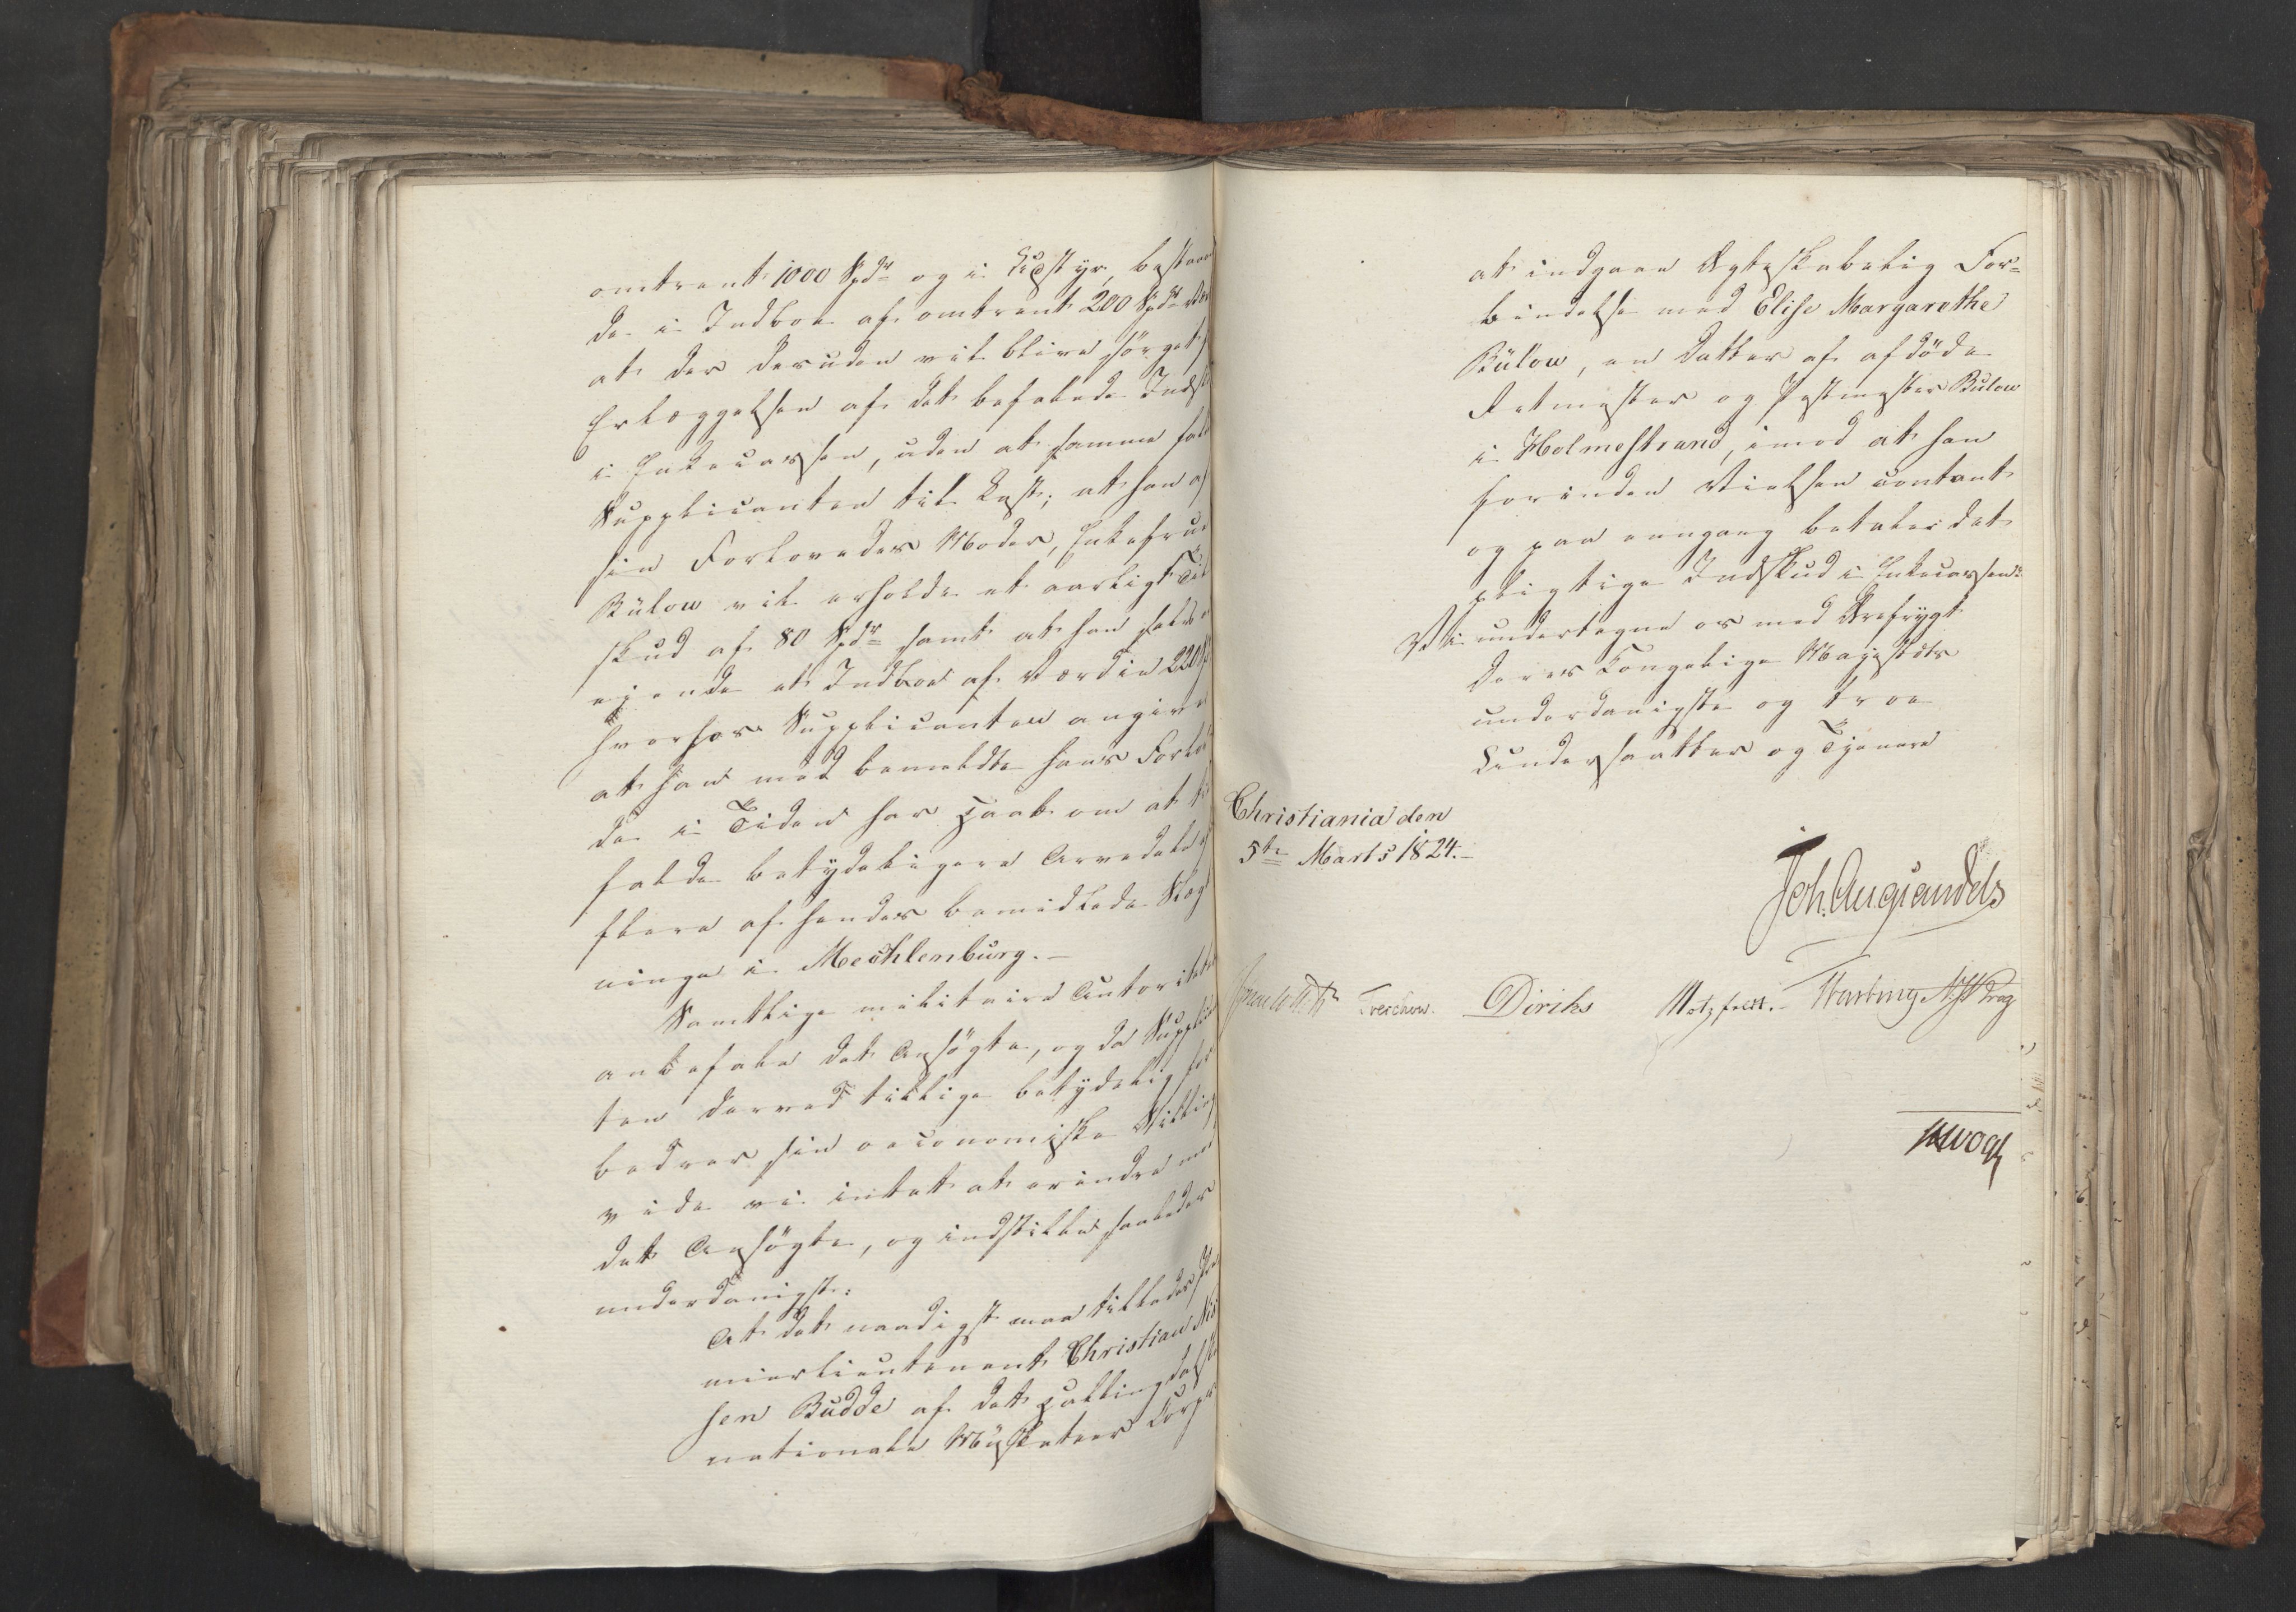 omtrent 1000 Spd. og i Udstyr, bestaaen
de i Indboe af omtrent 200 Spdr Vær
at der desuden vil blive sørget f
Erlæggelsen af det befalede Indsk
i Enkecassen, uden at samme fald
Supplicanten til Last; at han af
sin Forlovedes Moder, Enkefrue
Bülow vil erholde et aarligt Til
skud af 80 Spdr samt at han selv e
ejende et Indboe af Værdie 220 Sp
hvorhos Supplicanten angiver
at han med bemeldte hans Forlov
de i Tiden har Haab om at til
falde betydeligere Arvedele ef
flere af hendes bemidlede Slægt
ninge i Mechlenburg.—
Samtlige militaire Autoriteter
anbefale det Ansøgte, og da Supplican
ten derved tillige betydelig for
bedrer sin oeconomiske Stilling
vide vi intet at erindre mod
det Ansøgte, og indstille saaledes
underdanigst:
At det naadigst maa tillades Pre
mierlieutenant Christian Nis
sen Budde af det Hallingdalske
nationale Musketeer Corps
at indgaae Ægteskabelig For=
bindelse med Elise Margarethe
Bülow, en Datter af afdøde
Retmester og Postmester Bülow
i Holmestrand, imod at han
forinden Vielsen contant
og paa eengang betaler det
pligtige Indskud i Enkecassen.
Vi undertegne os med Ærefrygt
Deres Kongelige Majestæts
underdanigste og troe
Undersaatter og Tjenere
Christiania den
5te Marts 1824.—
Joh. Aug. Sandels
Treschow. Diriks Motzfeldt.
Vogt